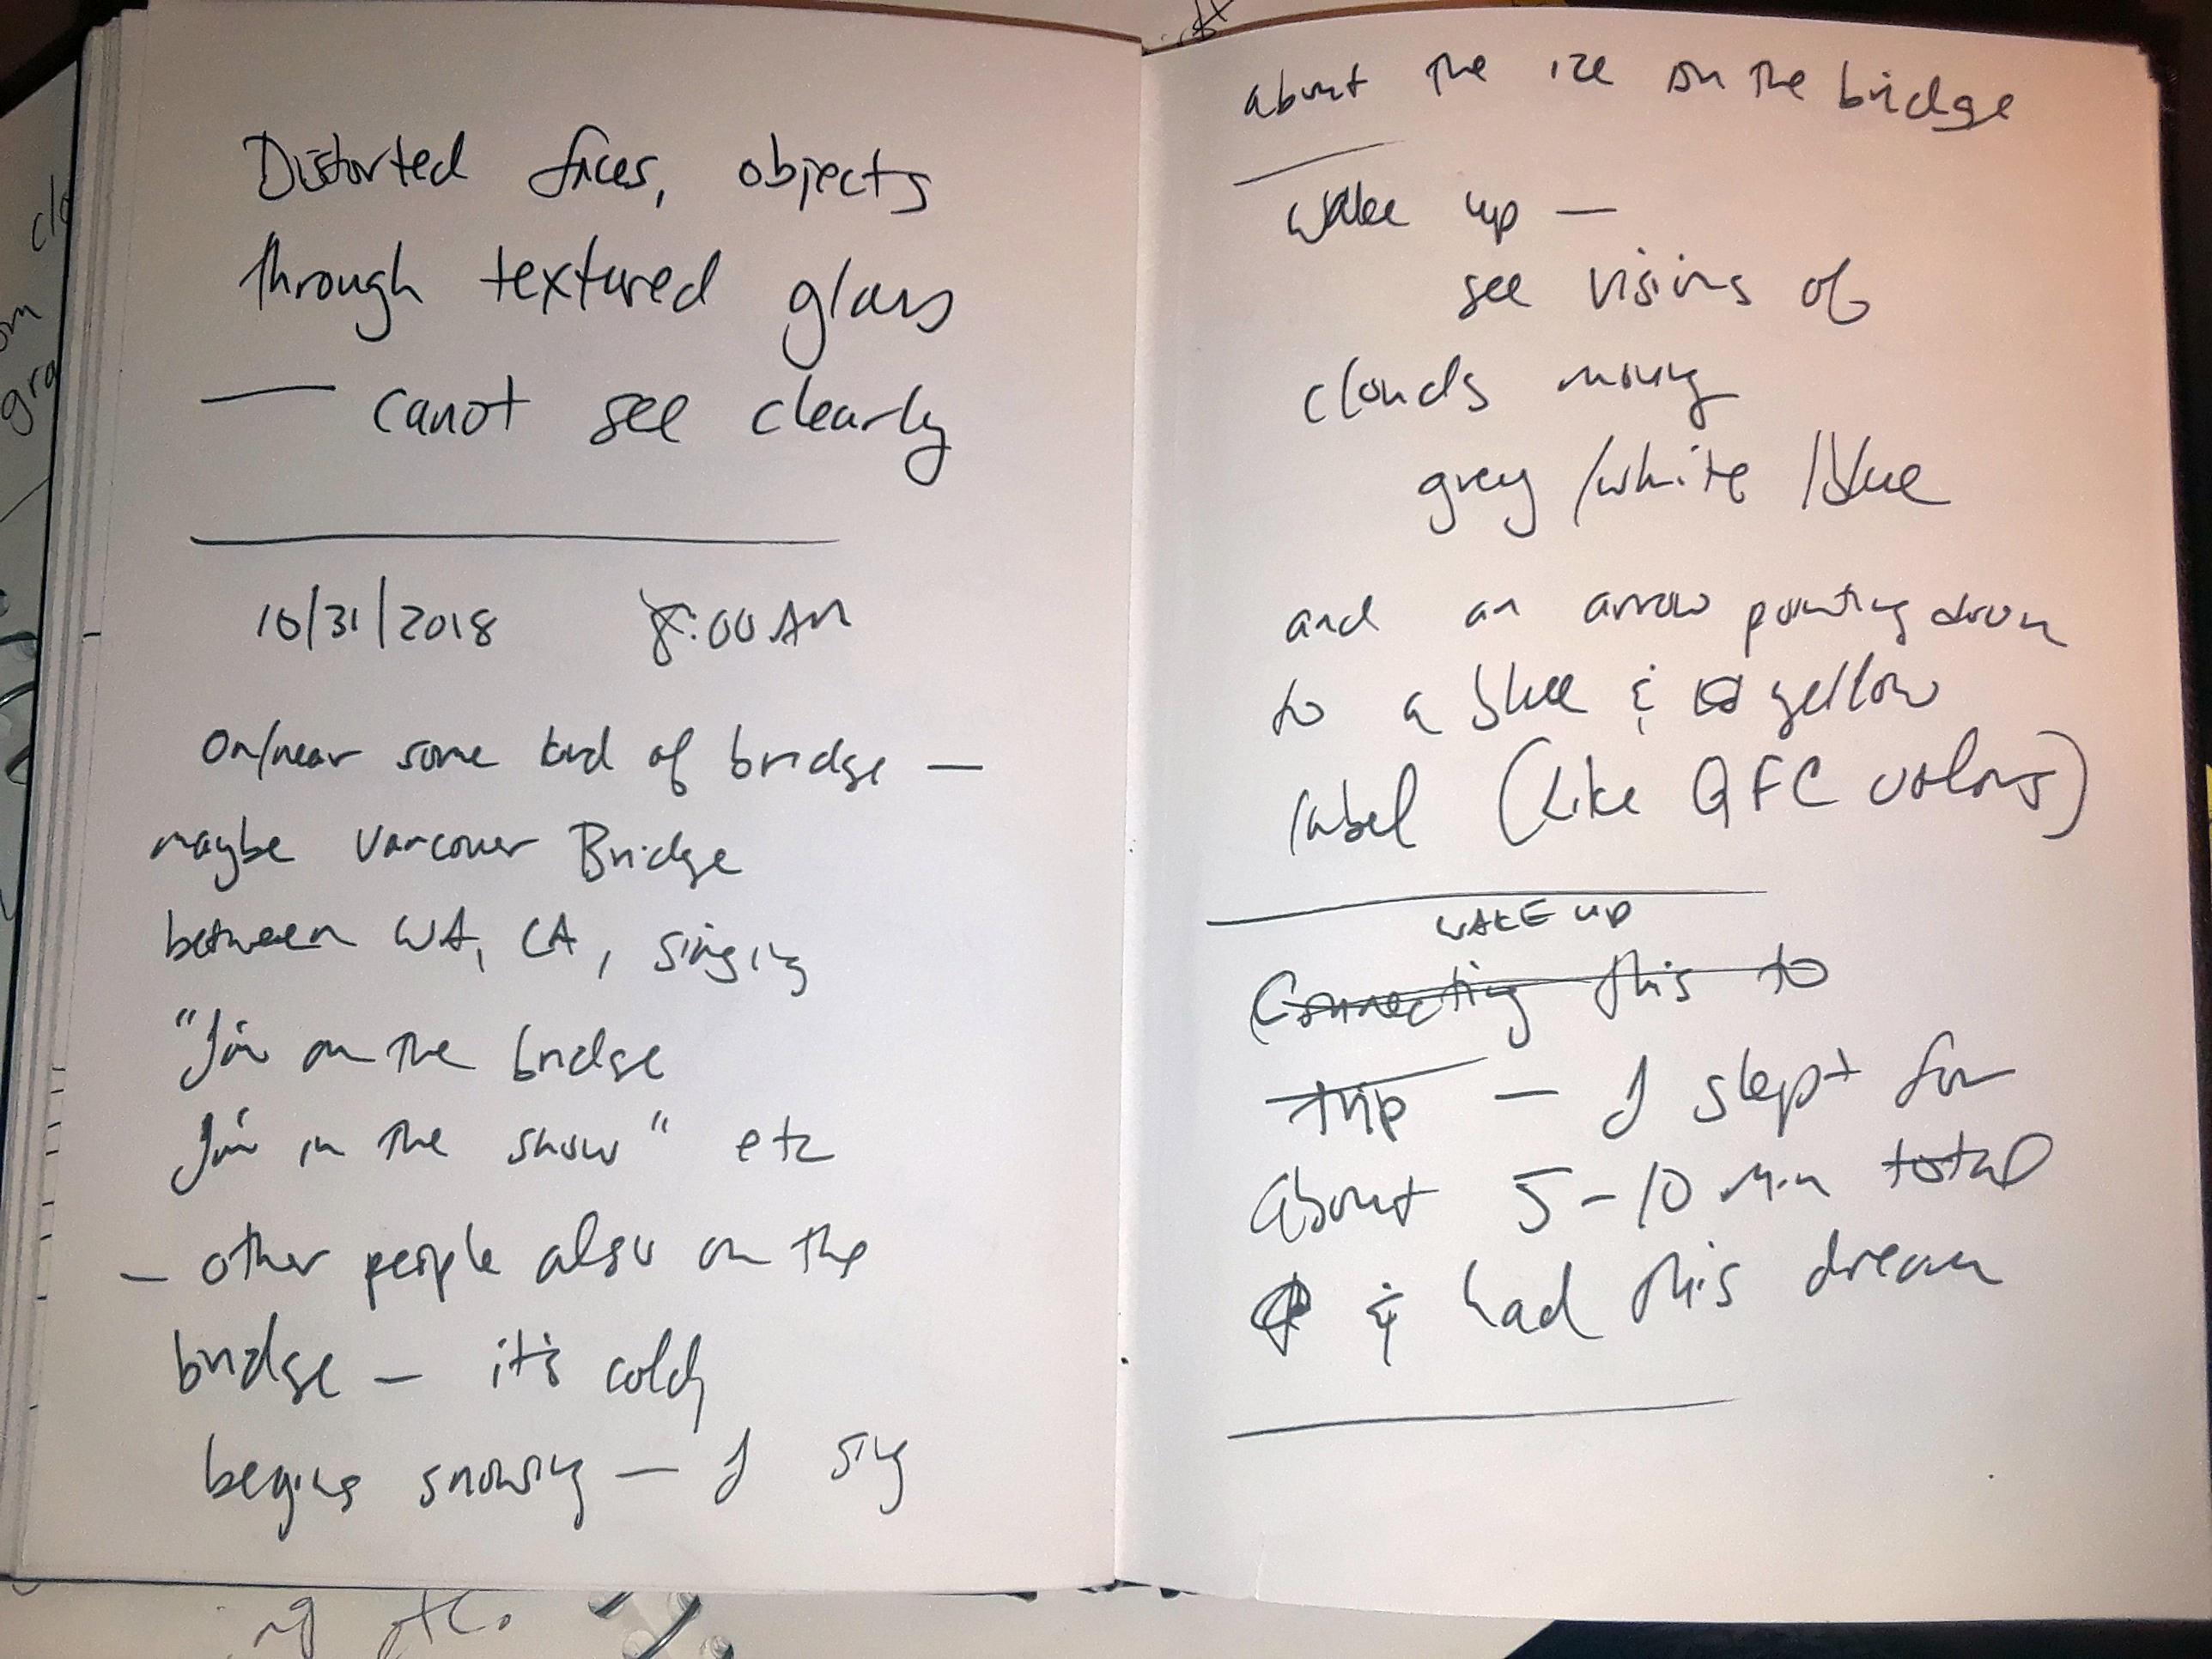 Distorted faces, objects
through textured glass
— canot see clearly
10/31/2018 8:00 AM
On/near some kind of bridge —
maybe Vancouver Bridge
between WA, CA, singing
"I'm on the bridge
I'm in the snow" etc
— other people also on the
bridge — it's cold,
begins snowing — I sing
about the ice on the bridge
wake up —
see visions of
clouds moving
grey / white / blue
and an arrow pointing down
to a blue & yellow
label (Like QFC colors)
WAKE UP
Connecting this to
trip — I slept for
about 5-10 min total
& had this dream
clo
om
gra
ng etc.